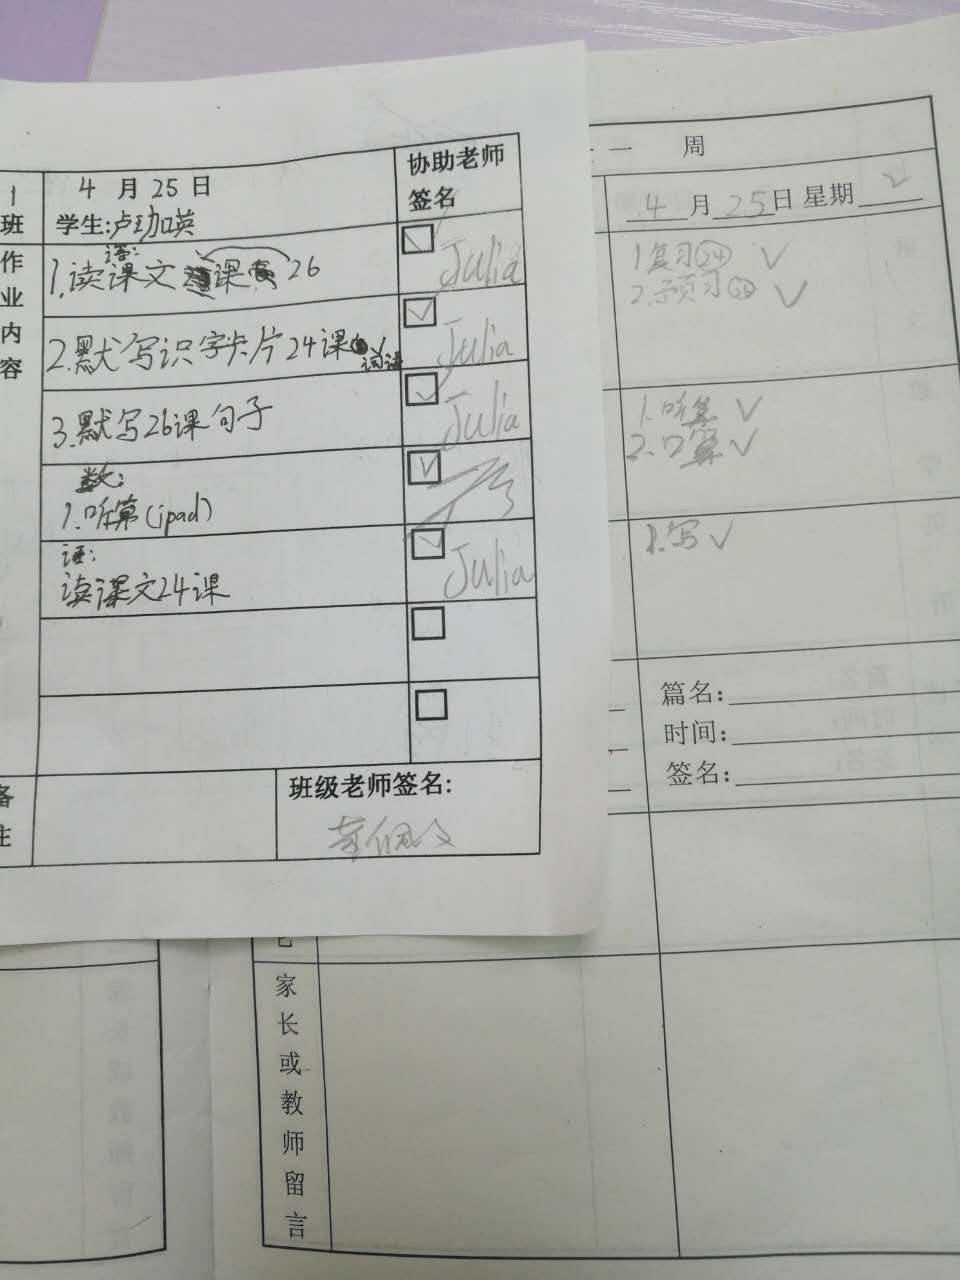 1
班
4 月 25 日
学生:卢加英
协助老师
签名
作
业
内
容
语:
1.读课文 课 26
Julia
2.默写识字卡片24课
词语
Julia
3.默写26课句子
Julia
数:
1.听算(ipad)
语:
读课文24课
Julia
备
注
班级老师签名:
一 周
4月25日 星期
1复习24
2.预习
1.听算
2.口算
1.写
篇名:
时间:
签名:
家
长
或
教
师
留
言